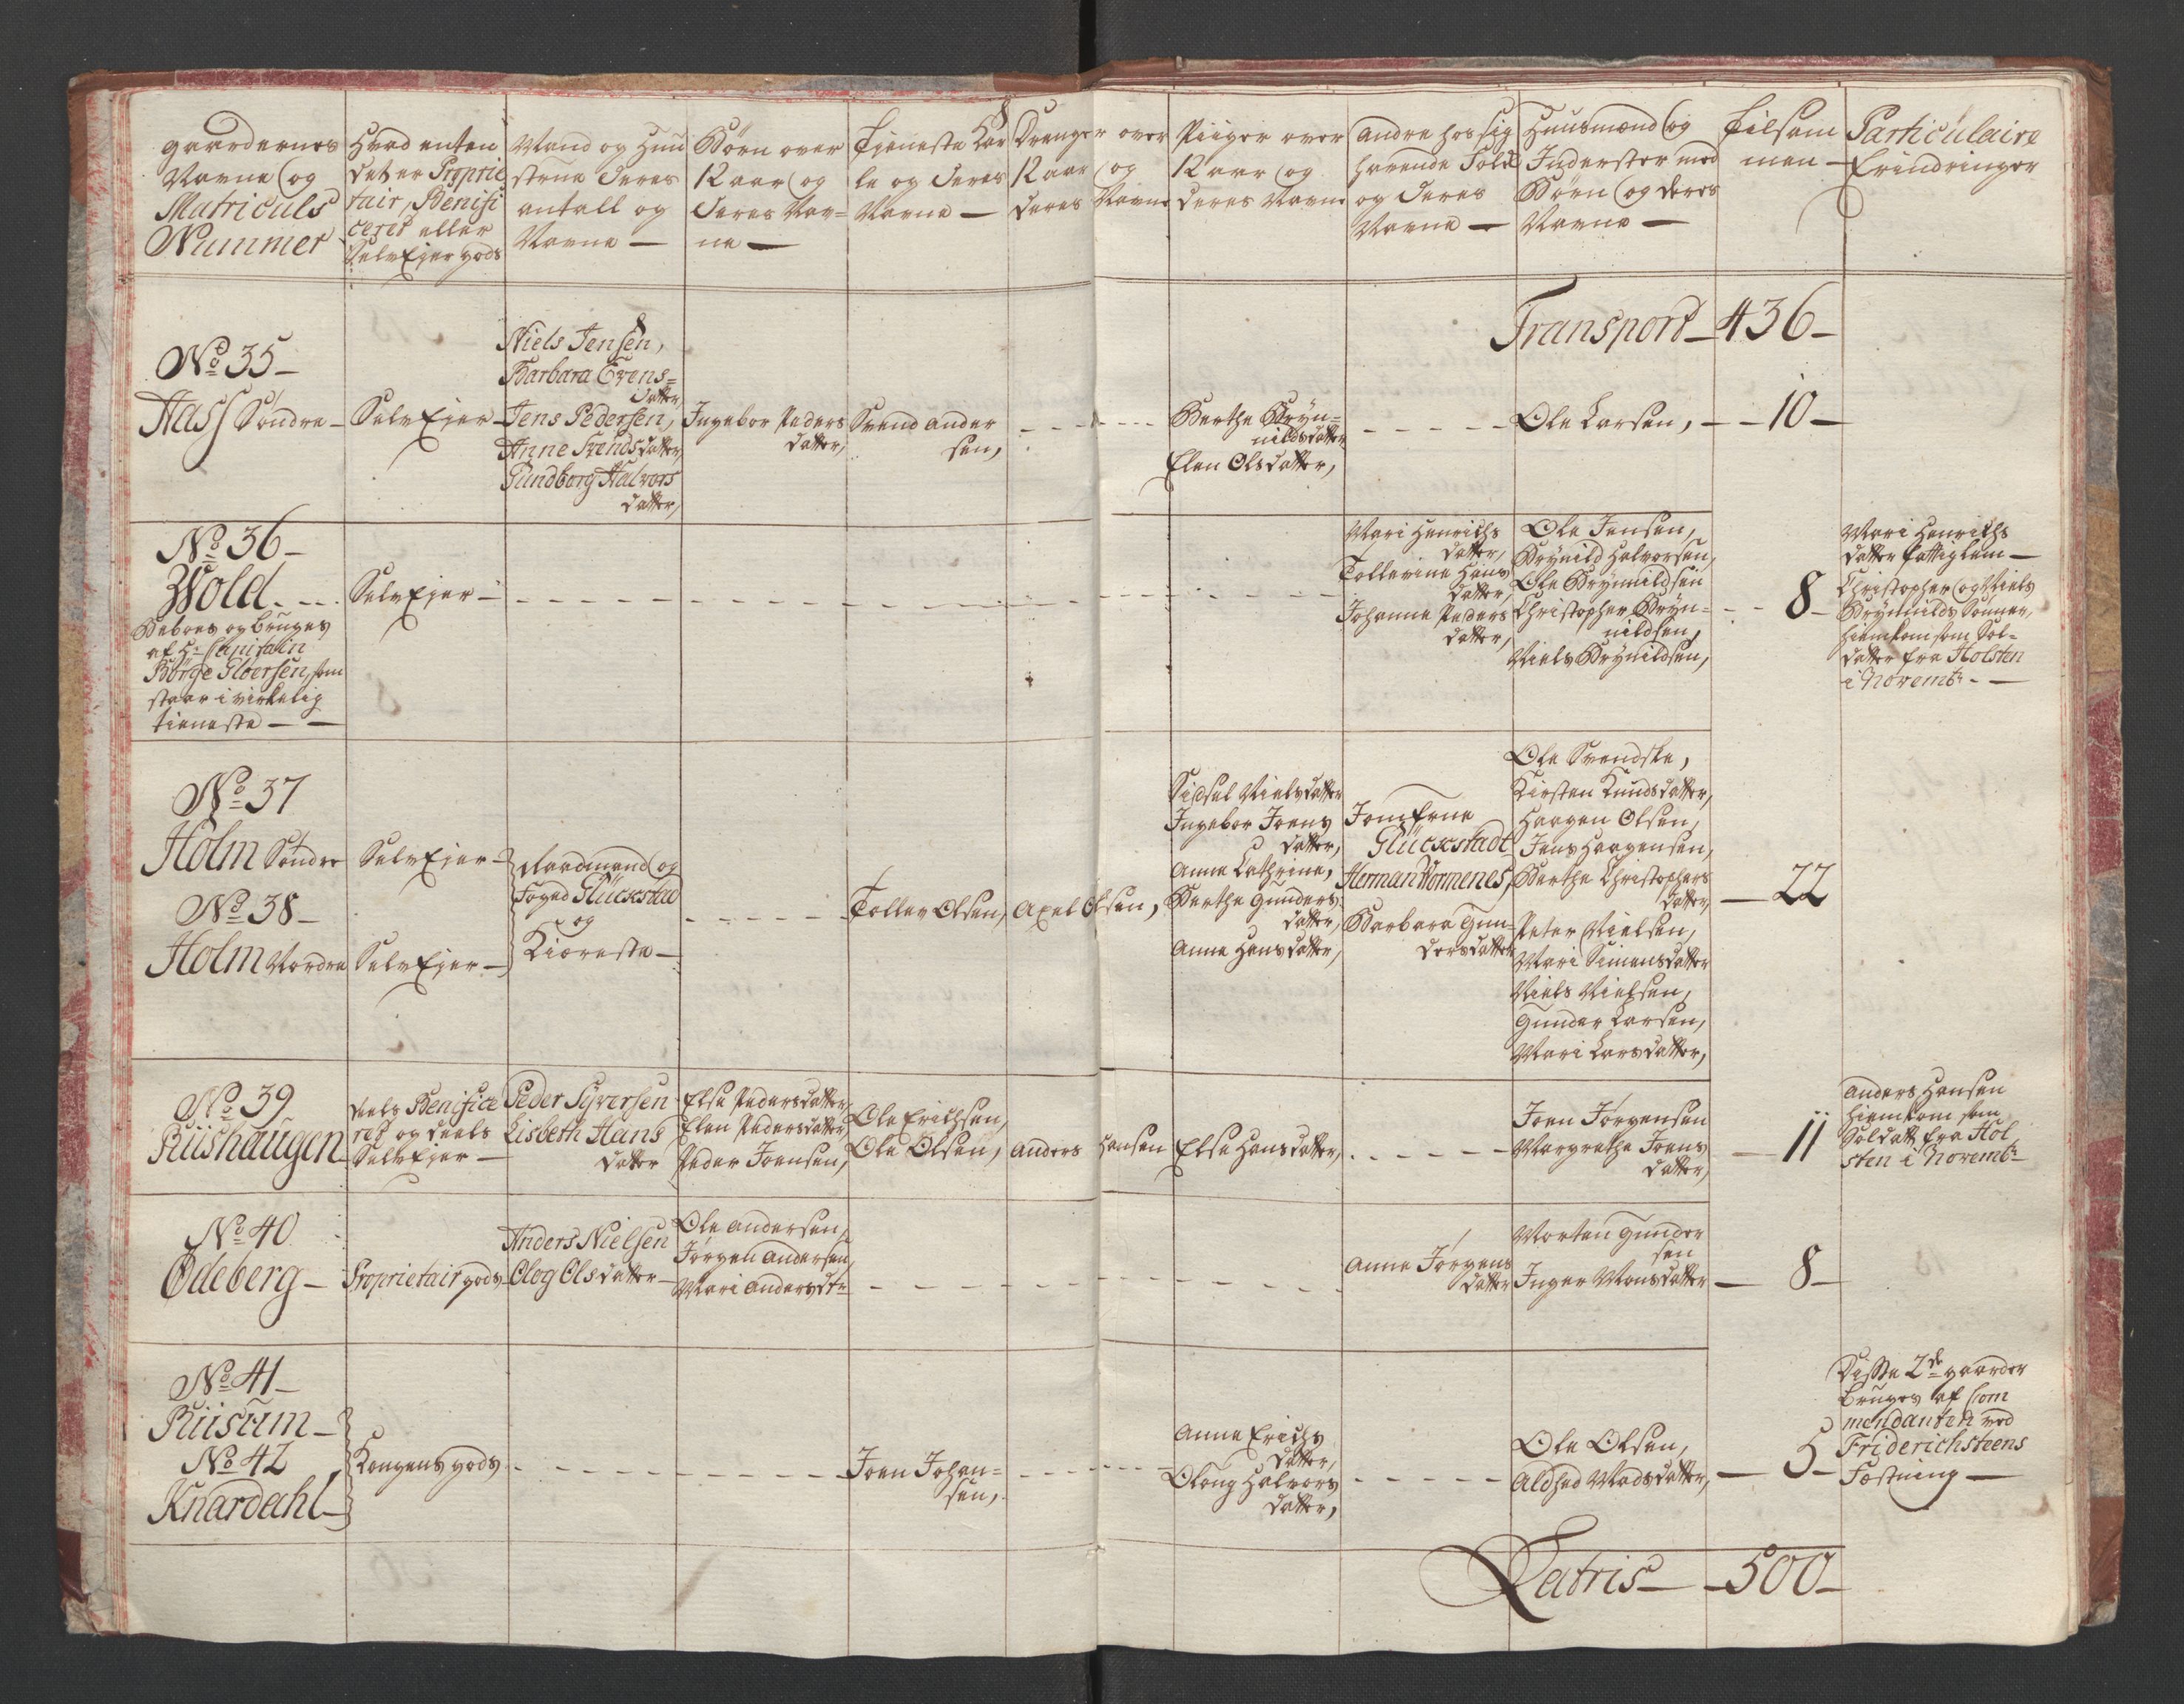 Gaardernes
Navne og
Matriculs
Nummer
Hvad enten
det er Proprie
tair, Benifi
ceret eller
SelvEjer gods
Mand og Huu
strue deres
antall og
Navne —
Børn over
12 aar og
deres Nav=
ne —
Tjeneste Kar
le og deres
Navne —
Drenge over
12 aar og
deres Navne
Piiger over
12 aar og
deres Navne
Andre hos sig
havende Folk
og deres
Navne —
Huusmænd og
Inderster med
Børn og deres
Navne —
Tilsam
men —
Particulaire
Erindringer
Transport — 436 —
No 35 —
Aass Søndre —
SelvEjer —
Niels Jensen,
Barbara Evens=
datter
Jens Pedersen,
Anne Svendsdatter,
Gundborg Halvors
datter,
Ingebor Peders
datter,
Svend Ander
sen,
Berthe Bryn=
nildsdatter
Elen Olsdatter,
Ole Larsen,
— 10 —
No 36 —
Wold
Beboes og bruges
af Hr Capitain
Børge Sloersen, som
staar i virkelig
tieneste —
SelvEjer —
Mari Henrichs
datter,
Tollevine Hans
datter,
Johanne Peders
datter,
Ole Jensen,
Brynild Halvorsen,
Ole Brynnildsen
Christopher Bryn=
nildsen,
Niels Brynildsen,
8 —
Mari Henrichs
datter fattiglem —
Christopher og Niels
Brynnilds Sønner,
hiemkom som Sol=
dater fra Holsten
i Novembr —
No 37
Holm Søndre
SelvEjer —
No 38 —
Holm Nordre
SelvEjer —
Raadmand og
Foged Glückstad
og
Kiæreste —
Tollev Olsen,
Axel Olsen,
Sidsel Nielsdatter
Ingebor Joens
datter,
Anne Cathrine,
Berthe Gunders
datter,
Anne Hansdatter,
Jomfrue
Glückstadt
Herman Wormenes,
Barbara Gun=
dersdatter
Ole Svendske,
Kirsten Knudsdatter,
Haagen Olsen,
Jens Haagensen,
Berthe Christophers
datter
Peter Nielsen,
Mari Simensdatter
Niels Nielsen,
Gunder Larsen,
Mari Larsdatter,
— 22
No 39
Riishaugen
deels Benifice
ret og deels
SelvEjer —
Peder Syversen
Lisbeth Hans
datter
Else Pedersdatter,
Elen Pedersdatter
Peder Joensen,
Ole Erichsen,
Ole Olsen,
Anders Hansen
Else Hansdatter,
Joen Jørgensen
Margrethe Joens
datter,
— 11
Anders Hansen
hiemkom som
Soldatt fra Hol
sten i Novembr
No 40
Ødeberg —
Proprietair gods
Anders Nielsen
Olog Olsdatter
Ole Andersen,
Jørgen Andersen,
Mari Andersdtr
Anne Jørgens
datter
Morten Gunder
sen
Inger Monsdatter
— 8 —
No 41 —
Riisum —
No 42
Knardahl —
Kongens gods
Joen Johan=
sen,
Anne Erichs
datter,
Oloug Halvors
datter,
Ole Olsen,
Aldhed Madsdatter,
— 5 —
Disse 2de gaarder
bruges af Com
mendanten ved
Friderichsteens
Fæstning —
Latris — 500 —